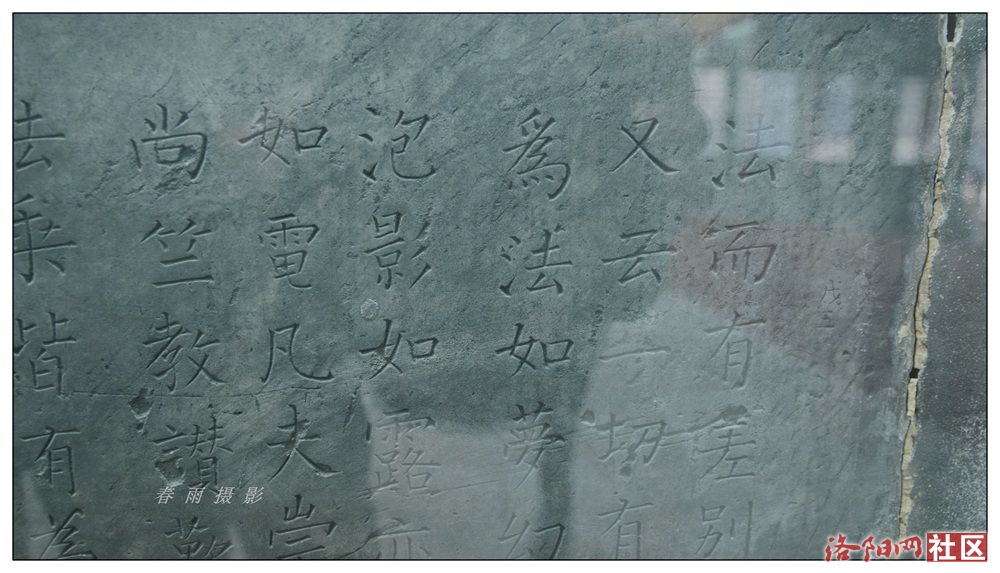 法而有差別
又云一切有
爲法如夢幻
泡影如露亦
如電凡夫崇
尚竺教讃
乘皆有為
春雨摄影
洛阳网社区